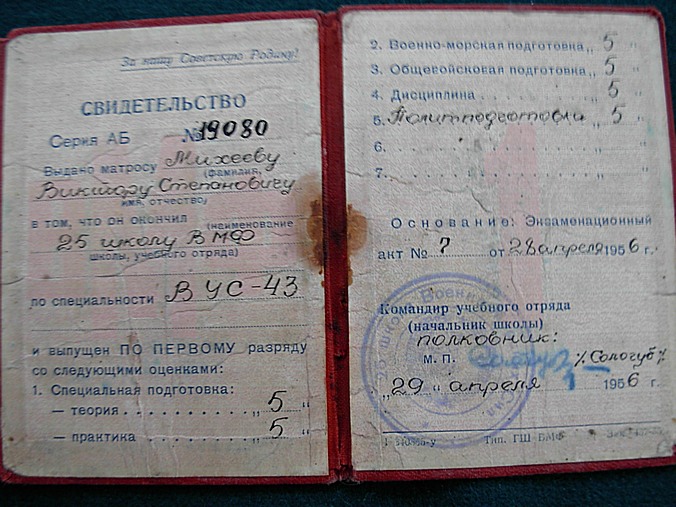 За нашу Советскую Родину!
СВИДЕТЕЛЬСТВО
Серия АБ № 19080
Выдано матросу Михееву
(фамилия,
Виктору Степановичу
имя, отчество)
в том, что он окончил (наименование
25 школу ВМФ
школы, учебного отряда)
по специальности ВУС-43
и выпущен ПО ПЕРВОМУ разряду
со следующими оценками:
1. Специальная подготовка:
— теория . . . . . . . . . . „ 5 "
— практика . . . . . . . . . „ 5 "
2. Военно-морская подготовка „ 5 "
3. Общевойсковая подготовка „ 5 "
4. Дисциплина . . . . . . . . „ 5 "
5. Политподготовка „ 5 "
6.
7.
Основание: Экзаменационный
акт № 7 от 28 апреля 1956 г.
Командир учебного отряда
(начальник школы)
полковник:
М. П. /Сологуб/
„29" апреля 1956 г.
Тип. ГШ ВМФ
25 школа Военно